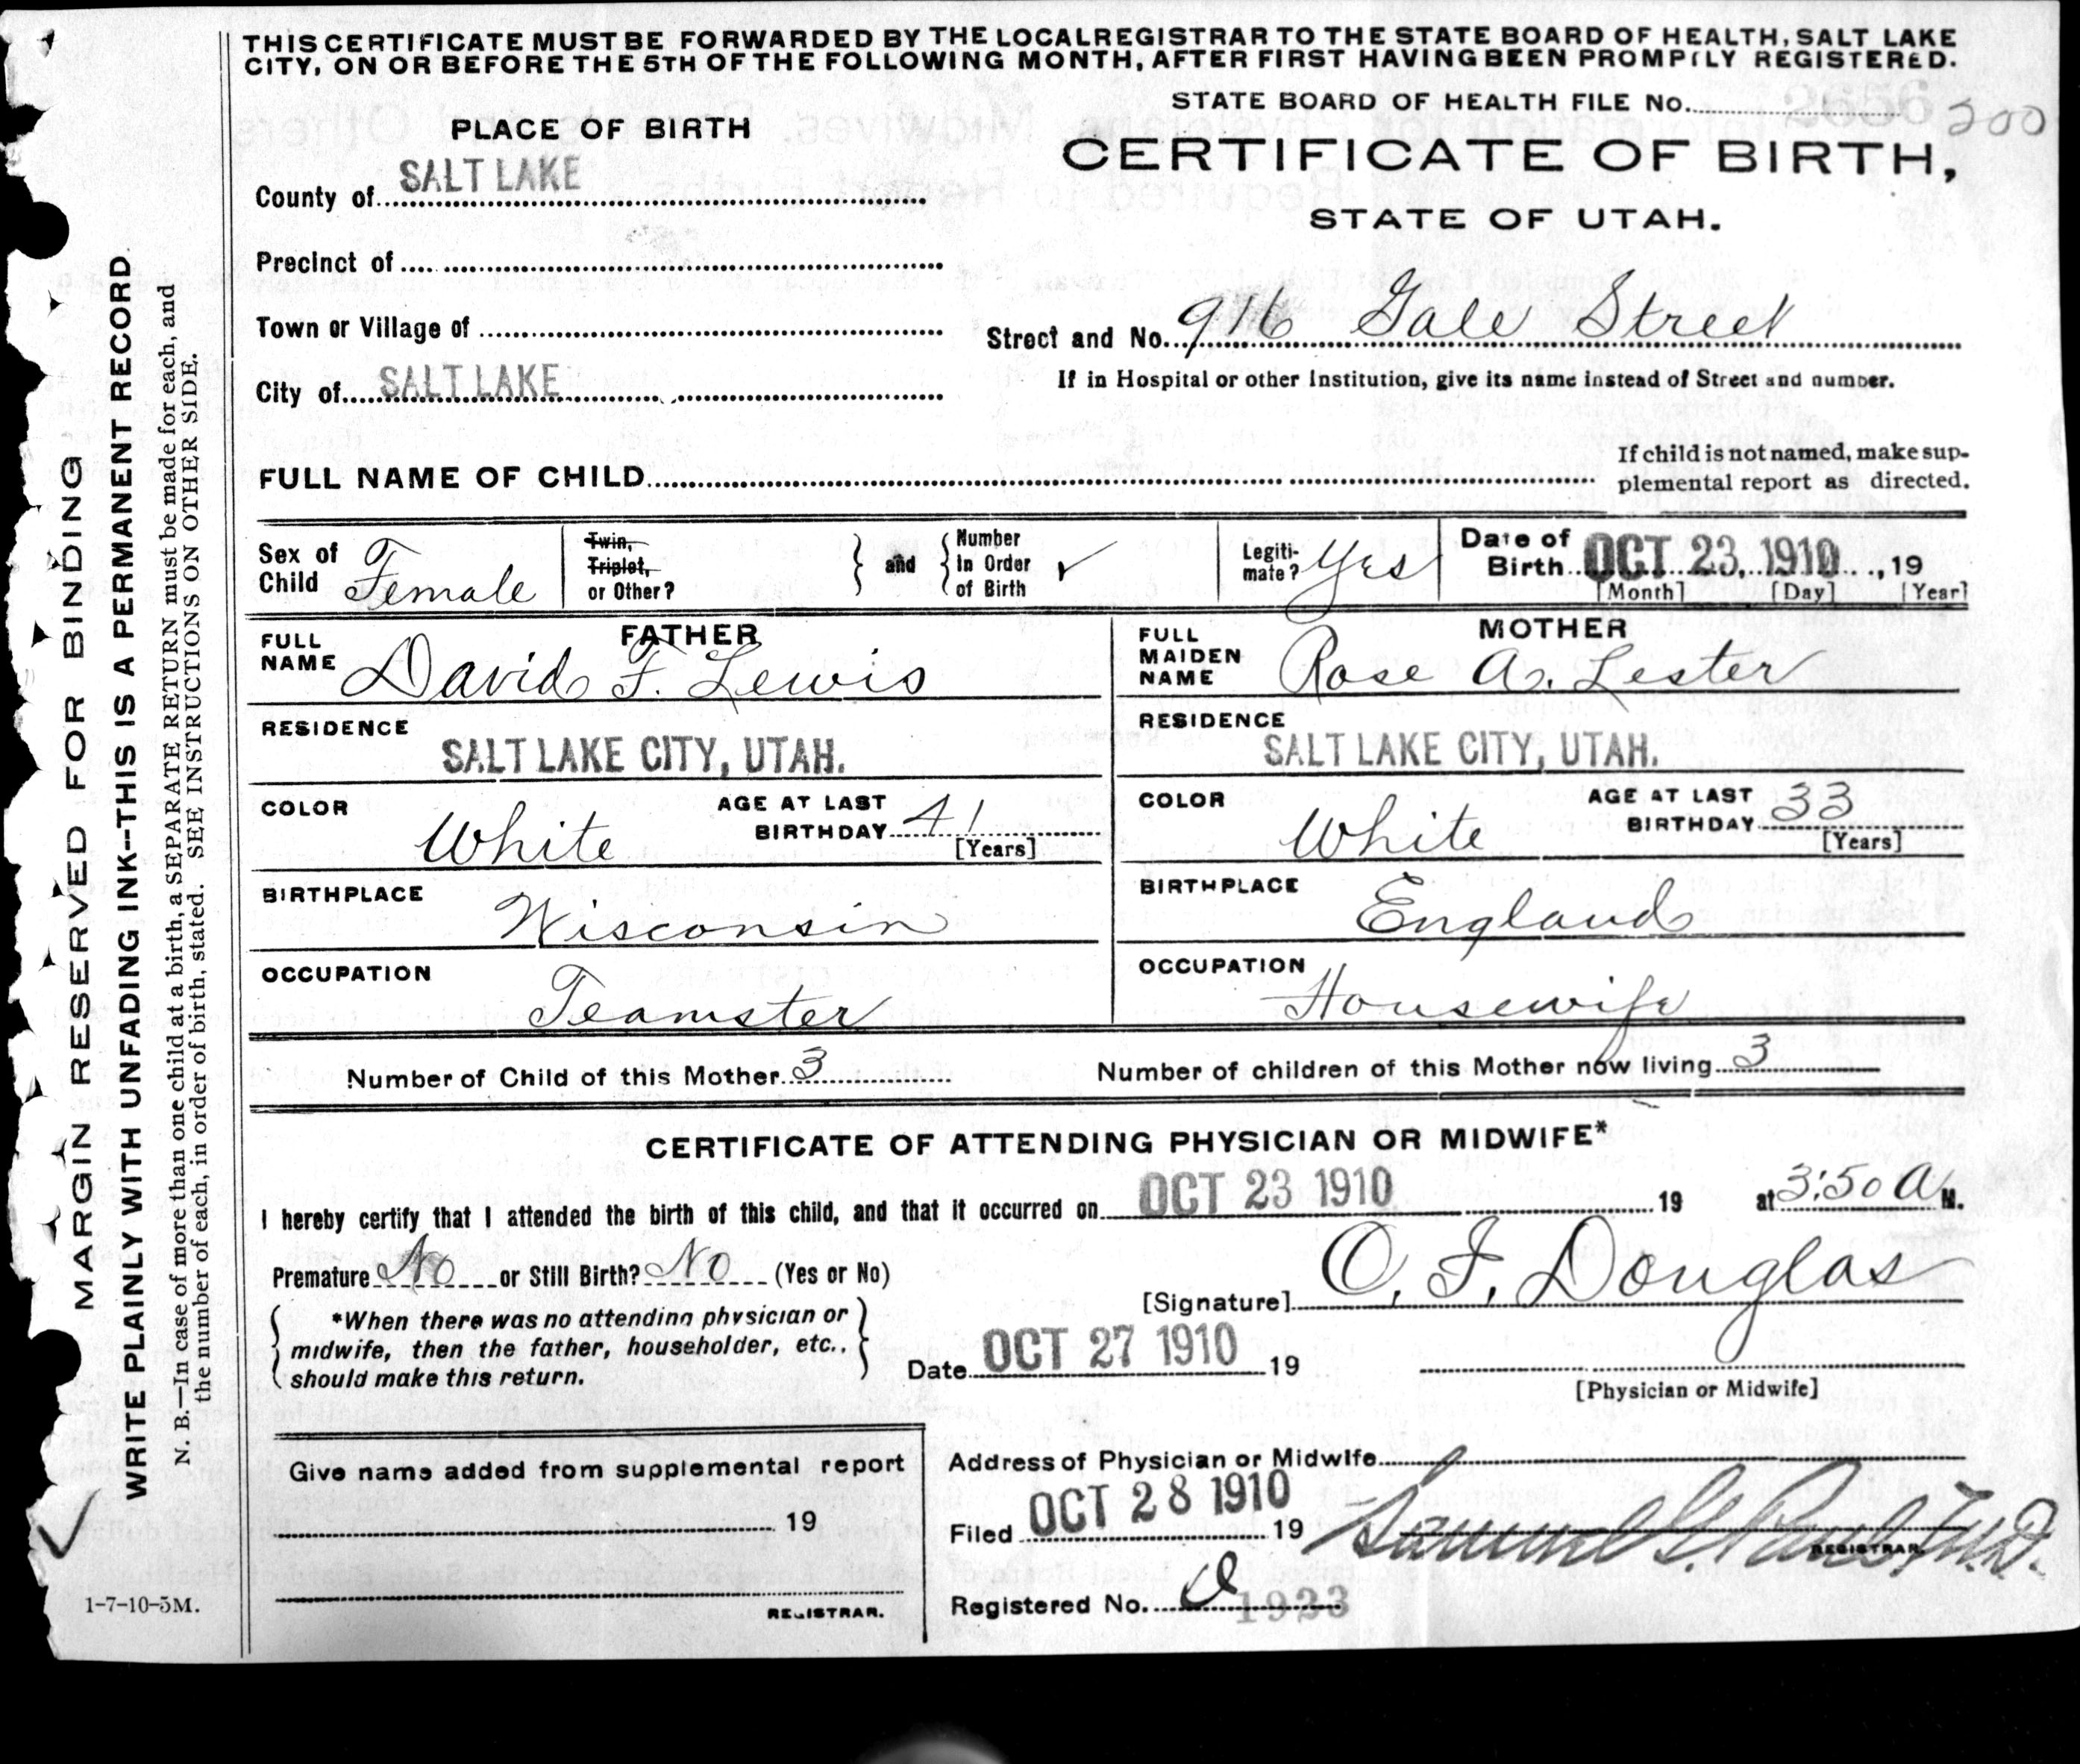 THIS CERTIFICATE MUST BE FORWARDED BY THE LOCAL REGISTRAR TO THE STATE BOARD OF HEALTH, SALT LAKE
CITY, ON OR BEFORE THE 5TH OF THE FOLLOWING MONTH, AFTER FIRST HAVING BEEN PROMPTLY REGISTERED.
STATE BOARD OF HEALTH FILE No. 2656 200
PLACE OF BIRTH
CERTIFICATE OF BIRTH,
STATE OF UTAH.
County of SALT LAKE
Precinct of
Town or Village of
Street and No. 916 Gale Street
City of SALT LAKE
If in Hospital or other Institution, give its name instead of Street and number.
FULL NAME OF CHILD
If child is not named, make sup-
plemental report as directed.
Sex of Child Female
Twin, Triplet, or Other?
and
Number In Order of Birth
Legiti-mate? Yes
Date of Birth OCT 23. 1910, 19
[Month] [Day] [Year]
FATHER
FULL NAME David F. Lewis
RESIDENCE
SALT LAKE CITY, UTAH.
COLOR White
AGE AT LAST BIRTHDAY 41
[Years]
BIRTHPLACE
Wisconsin
OCCUPATION
Teamster
MOTHER
FULL MAIDEN NAME Rose A. Lester
RESIDENCE
SALT LAKE CITY, UTAH.
COLOR White
AGE AT LAST BIRTHDAY 33
[Years]
BIRTHPLACE
England
OCCUPATION
Housewife
Number of Child of this Mother 3
Number of children of this Mother now living 3
CERTIFICATE OF ATTENDING PHYSICIAN OR MIDWIFE*
I hereby certify that I attended the birth of this child, and that it occurred on OCT 23 1910 19 at 3:50 A M.
Premature No or Still Birth? No (Yes or No)
[Signature] O. J. Douglas
*When there was no attending physician or
midwife, then the father, householder, etc.,
should make this return.
Date OCT 27 1910 19
[Physician or Midwife]
Give name added from supplemental report
19
REGISTRAR.
Address of Physician or Midwife
Filed OCT 28 1910 19 Samuel G. Paul M.D.
REGISTRAR.
Registered No. 1923
1-7-10-5M.
MARGIN RESERVED FOR BINDING
WRITE PLAINLY WITH UNFADING INK--THIS IS A PERMANENT RECORD
N. B.—In case of more than one child at a birth, a SEPARATE RETURN must be made for each, and
the number of each, in order of birth, stated. SEE INSTRUCTIONS ON OTHER SIDE.